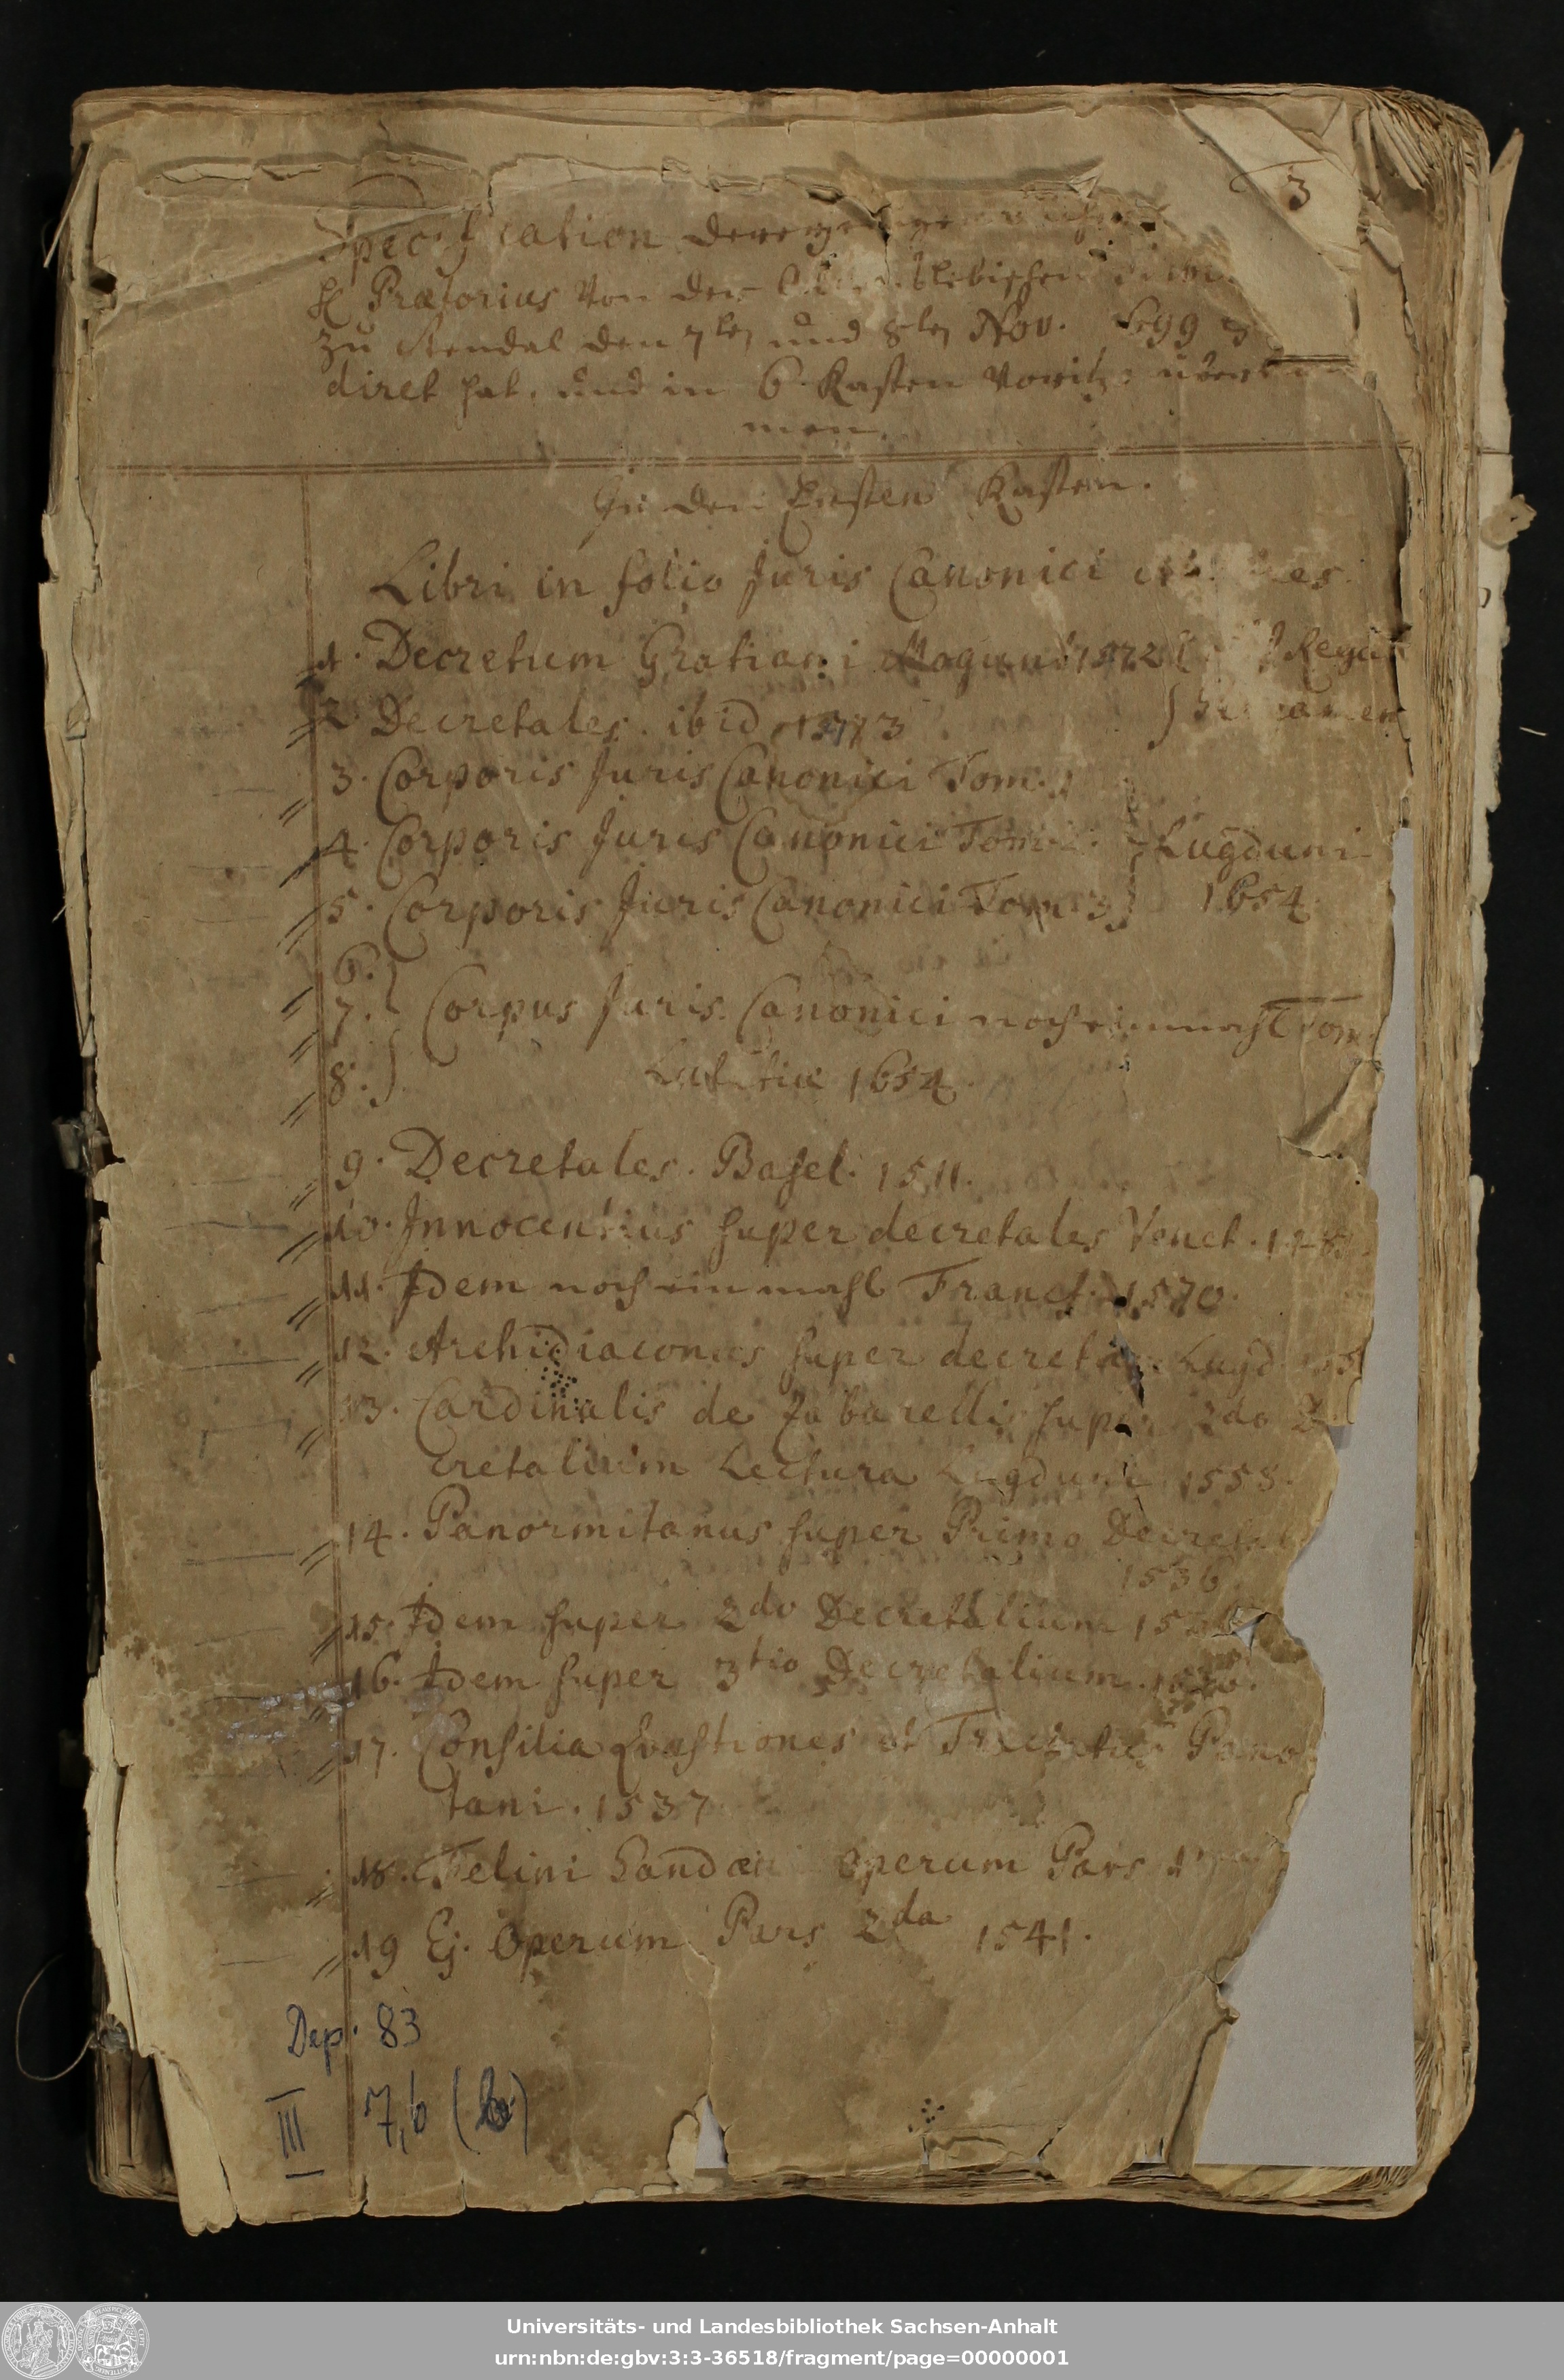 3
Specification derer
H Praetorius von der
zu Stendal den 7ten und 8ten Nov.
diret hat, und in 6 Kasten
men.
In den Ersten Kasten.
Libri in folio Juris Canonici
1. Decretum Gratiani Magunt
2 Decretales. ibid. 1473
3. Corporis Juris Canonici Tom. 1
4. Corporis Juris Canonici Tom. 2. Lugduni
5. Corporis Juris Canonici Tom. 3 1654.
6.
7. Corpus Juris Canonici noch einmahl Tom.
8. Lutetiae 1654.
9. Decretales. Basel. 1511.
10. Innocentius super decretales Venet.
11. Idem noch einmahl Francf. 1570.
12. Archidiaconus super Lugd
13. Cardinalis de Zabarellis super 2do De
cretalium Lectura Lugduni 1558.
14. Panormitanus super Primo Decretal
1536
15. Idem super 2do Decretalium
16. Idem super 3tio Decretalium.
17. Consilia Quaestiones et Tractatus Panor
tani. 1537
18. Felini Sandaei Operum Pars 1
19 Ej. Operum Pars 2da 1541.
Dep. 83
III 7,6 (b)
Universitäts- und Landesbibliothek Sachsen-Anhalt
urn:nbn:de:gbv:3:3-36518/fragment/page=00000001